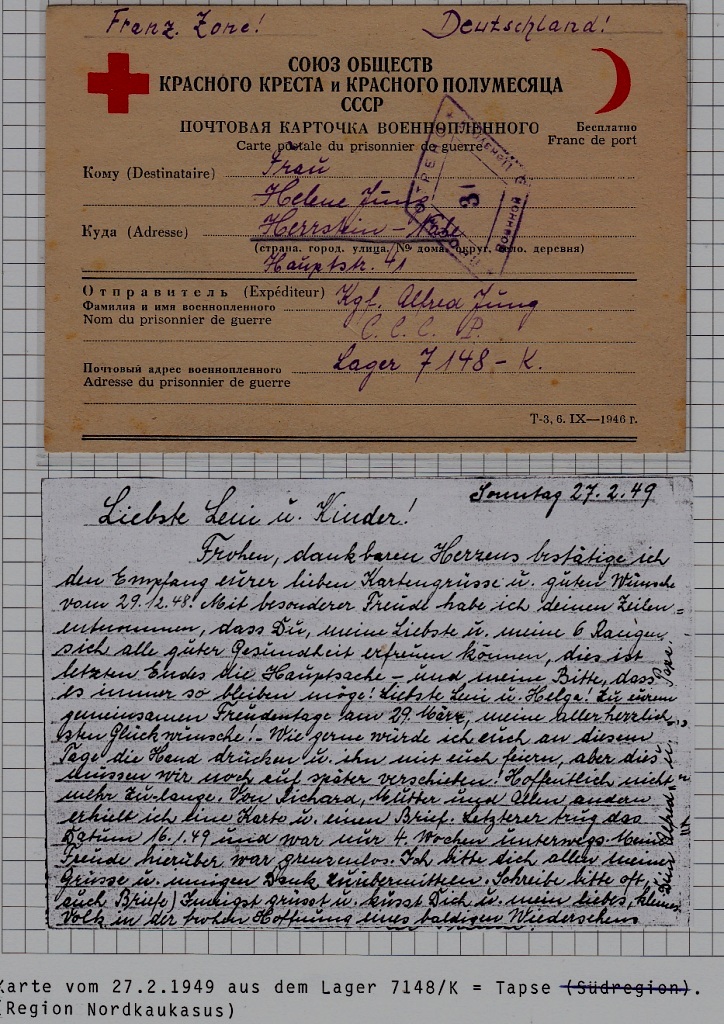 Franz. Zone! Deutschland!
СОЮЗ ОБЩЕСТВ
КРАСНОГО КРЕСТА и КРАСНОГО ПОЛУМЕСЯЦА
СССР
ПОЧТОВАЯ КАРТОЧКА ВОЕННОПЛЕННОГО
Бесплатно
Carte postale du prisonnier de guerre
Franc de port
Кому (Destinataire) Frau
Helene Jung
Куда (Adresse) Herrstein - Nahe
(страна, город, улица, № дома, округ, село, деревня)
Hauptstr. 41
Отправитель (Expéditeur) Kgf. Alfred Jung
Фамилия и имя военнопленного
Nom du prisonnier de guerre
C.C.C.P.
Почтовый адрес военнопленного Lager 7148-K.
Adresse du prisonnier de guerre
Т-3, 6. IX—1946 г.
31
Sonntag 27.2.49
Liebste Leni u. Kinder!
Frohen, dankbaren Herzens bestätige ich
den Empfang eurer lieben Kartengrüsse u. guten Wünsche
vom 29.12.48! Mit besonderer Freude habe ich deinen Zeilen
entnommen, dass Du, meine Liebste u. meine 6 Rangen
sich alle guter Gesundheit erfreuen können, dies ist
letzten Endes die Hauptsache - und meine Bitte, dass
es immer so bleiben möge! Liebste Leni u. Helga! Zu eurem
gemeinsamen Freudentage am 29. März, meine allerherzlich-
sten Glückwünsche! - Wie gerne würde ich euch an diesem
Tage die Hand drücken u. ihn mit euch feiern, aber dies
müssen wir noch auf später verschieben! Hoffentlich nicht
mehr zu lange. Von Richard, Mutter und Allen andern
erhielt ich eine Karte u. einen Brief. Letzterer trug das
Datum 16.1.49 und war nur 4 Wochen unterwegs. Meine
Freude hierüber war grenzenlos. Ich bitte dich allen meine
Grüsse u. innigen Dank zu übermitteln. Schreibe bitte oft,
auch Briefe) Innigst grüsst u. küsst Dich u. mein liebes, kleines
Volk in der frohen Hoffnung eines baldigen Wiedersehens
Dein Alfred u. Papa!
Karte vom 27.2.1949 aus dem Lager 7148/K = Tapse (Südregion).
(Region Nordkaukasus)